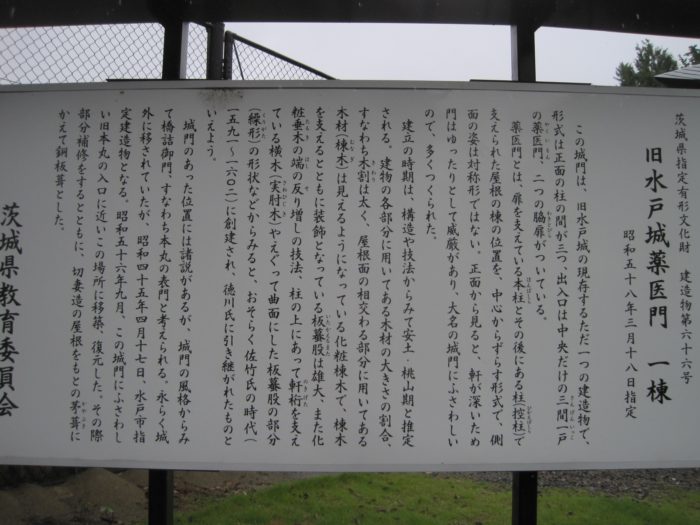 茨城県指定有形文化財 建造物第六十六号
旧水戸城薬医門 一棟
昭和五十八年三月十八日指定
この城門は、旧水戸城の現存するただ一つの建造物で、
形式は正面の柱の間が三つ、出入口は中央だけの三間一戸
の薬医門、二つの脇扉がついている。
薬医門とは、扉を支えている本柱とその後にある柱(控柱)で
支えられた屋根の棟の位置を、中心からずらす形式で、側
面の姿は対称形ではない。正面から見ると、軒が深いため
門はゆったりとして威厳があり、大名の城門にふさわしい
ので、多くつくられた。
建立の時期は、構造や技法からみて安土・桃山期と推定
される。建物の各部分に用いてある木材の大きさの割合、
すなわち木割は太く、屋根面の相交わる部分に用いてある
木材(棟木)は見えるようになっている化粧棟木で、棟木
を支えるとともに装飾となっている板蟇股は雄大、また化
粧垂木の端の反り増しの技法、柱の上にあって軒桁を支え
ている横木(実肘木)やえぐって曲面にした板蟇股の部分
(繰形)の形状などからみると、おそらく佐竹氏の時代(
一五九一〜一六〇二)に創建され、徳川氏に引き継がれたものと
いえよう。
城門のあった位置には諸説があるが、城門の風格からみ
て橋詰御門、すなわち本丸の表門と考えられる。永らく城
外に移されていたが、昭和四十五年四月十七日、水戸市指
定建造物となる。昭和五十六年九月、この城門にふさわし
い旧本丸の入口に近いこの場所に移築、復元した。その際
部分補修をするとともに、切妻造の屋根をもとの茅葺に
かえて銅板葺とした。
茨城県教育委員会